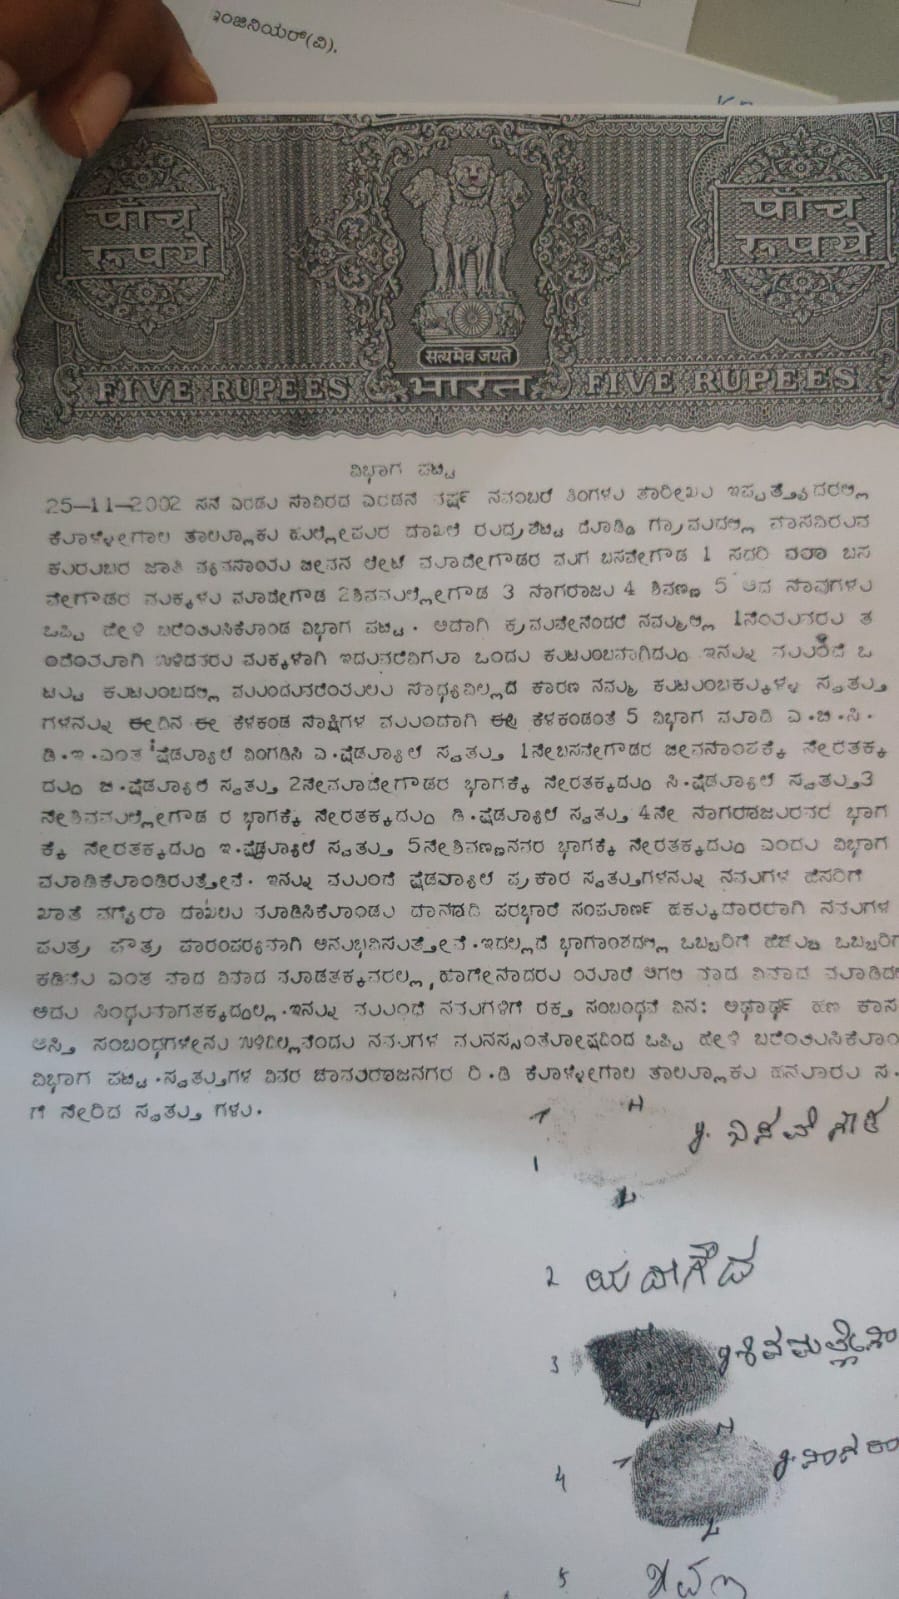 ಇಂಜಿನಿಯರ್(ವಿ).
पाँच रूपये
पाँच रूपये
सत्यमेव जयते
FIVE RUPEES भारत FIVE RUPEES
ವಿಭಾಗ ಪಟ್ಟಿ
25-11-2002 ನೆ ಎರಡು ಸಾವಿರದ ಎರಡನೆ ವರ್ಷ ನವಂಬರೆ ತಿಂಗಳು ತಾರೀಖು ಇಪ್ಪತ್ತೈದರಲ್ಲಿ
ಕೊಳ್ಳೇಗಾಲ ತಾಲ್ಲೂಕು ಹುಲ್ಲೇಪುರ ದಾಖಲೆ ರುದ್ರಶೆಟ್ಟಿ ದೊಡ್ಡಿ ಗ್ರಾಮದಲ್ಲಿ ವಾಸವಿರುವ
ಕುರುಬರ ಜಾತಿ ವ್ಯವಸಾಯ ಜೀವನ ಲೇಟೆ ಮಾದೇಗೌಡರ ಮಗ ಬಸವೇಗೌಡ 1 ಸದರಿ ಬಸ
ವೇಗೌಡರ ಮಕ್ಕಳು ಮಾದೇಗೌಡ 2ಶಿವಮಲ್ಲೇಗೌಡ 3 ನಾಗರಾಜು 4 ಶಿವಣ್ಣ 5 ಆದ ನಾವುಗಳು
ಒಪ್ಪಿ ಹೇಳಿ ಬರೆಯಿಸಿಕೊಂಡ ವಿಭಾಗ ಪಟ್ಟಿ. ಅದಾಗಿ ಕ್ರಮವೇನೆಂದರೆ ನಮ್ಮಲ್ಲಿ 1ನೆಯವರು ತ
ಂದೆಯಾಗಿ ಉಳಿದವರು ಮಕ್ಕಳಾಗಿ ಇದುವರೆವಿಗೂ ಒಂದು ಕುಟುಂಬವಾಗಿದ್ದು ಇನ್ನು ಮುಂದೆ ಒ
ಟ್ಟು ಕುಟುಂಬದಲ್ಲಿ ಮುಂದುವರೆಯಲು ಸಾಧ್ಯವಿಲ್ಲದೆ ಕಾರಣ ನಮ್ಮ ಕುಟುಂಬಕ್ಕುಳ್ಳ ಸ್ವತ್ತು
ಗಳನ್ನು ಈದಿನ ಈ ಕೆಳಕಂಡ ಸಾಕ್ಷಿಗಳ ಮುಂದಾಗಿ ಈ ಕೆಳಕಂಡಂತೆ 5 ವಿಭಾಗ ಮಾಡಿ ಎ.ಬಿ.ಸಿ.
ಡಿ.ಇ.ಎಂತ ಷೆಡ್ಯೂಲೆ ವಿಂಗಡಿಸಿ ಎ.ಷೆಡ್ಯೂಲೆ ಸ್ವತ್ತು 1ನೇಬಸವೇಗೌಡರ ಜೀವನಾಂಶಕ್ಕೆ ಸೇರತಕ್ಕ
ದ್ದು ಬಿ.ಷೆಡ್ಯೂಲೆ ಸ್ವತ್ತು 2ನೇಮಾದೇಗೌಡರ ಭಾಗಕ್ಕೆ ಸೇರತಕ್ಕದ್ದು ಸಿ.ಷೆಡ್ಯೂಲೆ ಸ್ವತ್ತು3
ನೇಶಿವಮಲ್ಲೇಗೌಡ ರ ಭಾಗಕ್ಕೆ ಸೇರತಕ್ಕದ್ದು ಡಿ.ಷೆಡ್ಯೂಲೆ ಸ್ವತ್ತು 4ನೇ ನಾಗರಾಜುರವರ ಭಾಗ
ಕ್ಕೆ ಸೇರತಕ್ಕದ್ದು ಇ.ಷೆಡ್ಯೂಲೆ ಸ್ವತ್ತು 5ನೇಶಿವಣ್ಣನವರ ಭಾಗಕ್ಕೆ ಸೇರತಕ್ಕದ್ದು ಎಂದು ವಿಭಾಗ
ಮಾಡಿಕೊಂಡಿರುತ್ತೇವೆ. ಇನ್ನು ಮುಂದೆ ಷೆಡ್ಯೂಲೆ ಪ್ರಕಾರ ಸ್ವತ್ತುಗಳನ್ನು ನಮಗಳ ಹೆಸರಿಗೆ
ಖಾತೆ ವಗೈರಾ ದಾಖಲು ಮಾಡಿಸಿಕೊಂಡು ದಾನಾದಿ ಪರಭಾರೆ ಸಂಪೂರ್ಣ ಹಕ್ಕುದಾರರಾಗಿ ನಮಗಳ
ಪುತ್ರ ಪೌತ್ರ ಪಾರಂಪರ್ಯವಾಗಿ ಅನುಭವಿಸುತ್ತೇವೆ.ಇದಲ್ಲದೆ ಭಾಗಾಂಶದಲ್ಲಿ ಒಬ್ಬರಿಗೆ ಹೆಚ್ಚು ಒಬ್ಬರಿಗೆ
ಕಡಿಮೆ ಎಂತ ವಾದ ವಿವಾದ ಮಾಡತಕ್ಕವರಲ್ಲ,ಹಾಗೇನಾದರು ಯಾರೆ ಆಗಲಿ ವಾದ ವಿವಾದ ಮಾಡಿದರೆ
ಅದು ಸಿಂಧುವಾಗತಕ್ಕದ್ದಲ್ಲ.ಇನ್ನು ಮುಂದೆ ನಮಗಳಿಗೆ ರಕ್ತ ಸಂಬಂಧವೆ ವಿನ: ಅರ್ಥಾರ್ಥ ಹಣ ಕಾಸ
ಆಸ್ತಿ ಸಂಬಂಧಗಳೇನು ಉಳಿದಿಲ್ಲವೆಂದು ನಮಗಳ ಮನಸ್ಸಂತೋಷದಿಂದ ಒಪ್ಪಿ ಹೇಳಿ ಬರೆಯಿಸಿಕೊಂ
ವಿಭಾಗ ಪಟ್ಟಿ.ಸ್ವತ್ತುಗಳ ವಿವರ ಚಾಮರಾಜನಗರ ರಿ.ಡಿ ಕೊಳ್ಳೇಗಾಲ ತಾಲ್ಲೂಕು ಹನೂರು ಸ.
ಗೆ ಸೇರಿದ ಸ್ವತ್ತು ಗಳು.
1
2 ಮಾದೇಗೌಡ
3 ಶಿವಮಲ್ಲೇಗೌ
4 ನಾಗರಾ
5 ಶಿವಣ್ಣ